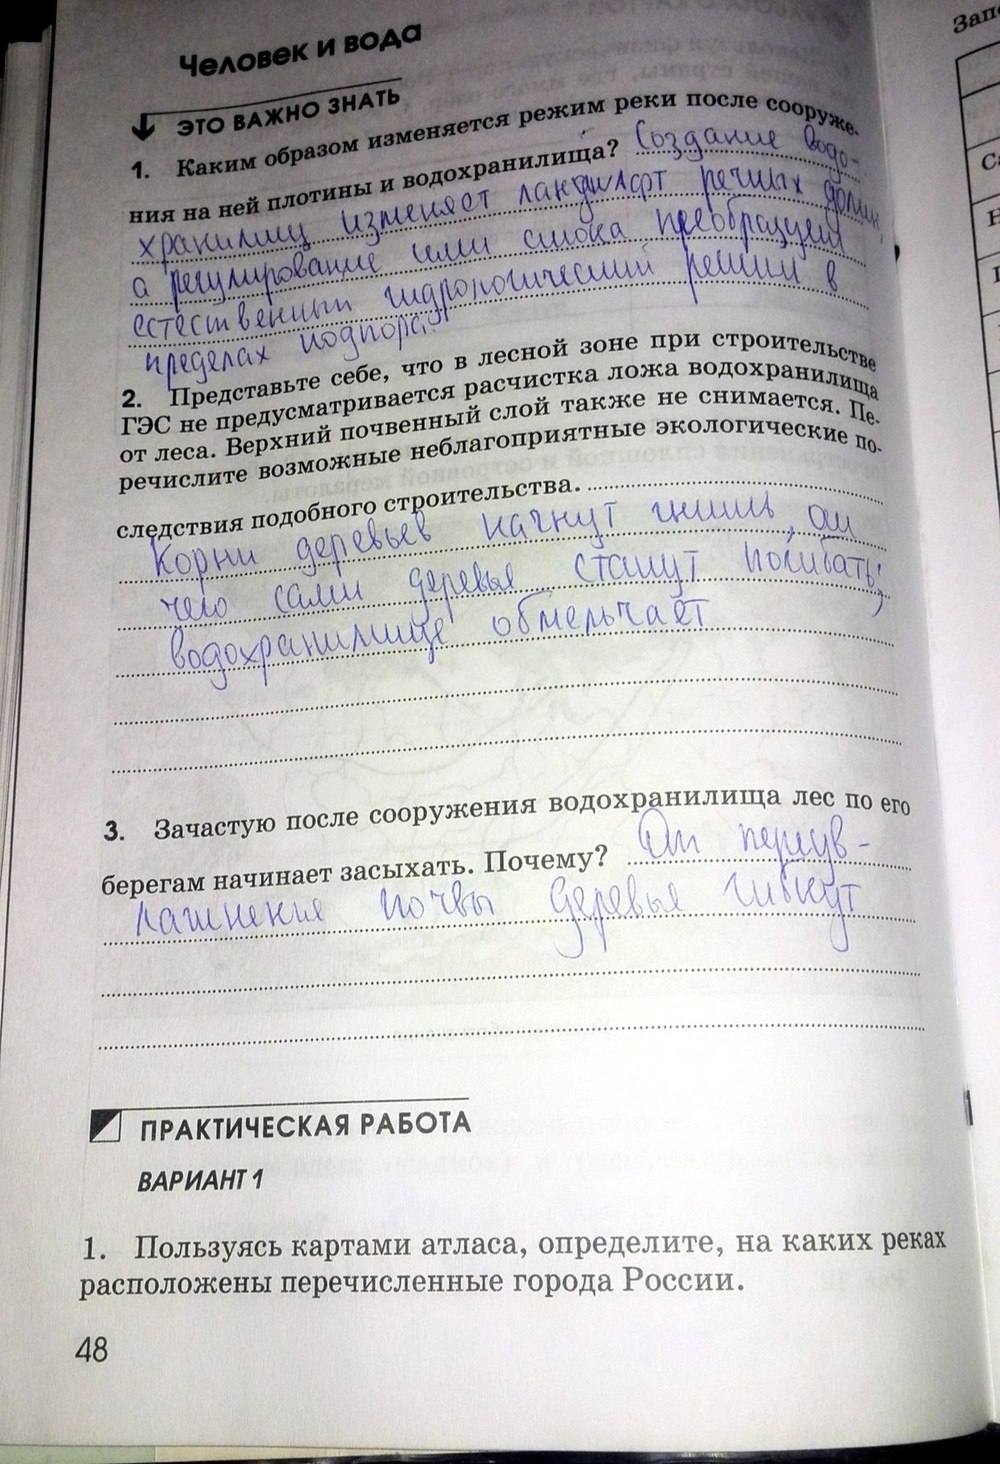 Человек и вода
ЭТО ВАЖНО ЗНАТЬ
1. Каким образом изменяется режим реки после сооруже-
ния на ней плотины и водохранилища? Создание водо-
хранилищ изменяет ландшафт речных долин,
а регулирование ими стока преобразует
естественный гидрологический режим в
пределах подпора.
2. Представьте себе, что в лесной зоне при строительстве
ГЭС не предусматривается расчистка ложа водохранилища
от леса. Верхний почвенный слой также не снимается. Пе-
речислите возможные неблагоприятные экологические по-
следствия подобного строительства.
Корни деревьев начнут гнить, от
чего сами деревья станут погибать;
водохранилище обмельчает
3. Зачастую после сооружения водохранилища лес по его
берегам начинает засыхать. Почему? От переув-
лажнения почвы деревья гибнут
ПРАКТИЧЕСКАЯ РАБОТА
ВАРИАНТ 1
1. Пользуясь картами атласа, определите, на каких реках
расположены перечисленные города России.
48